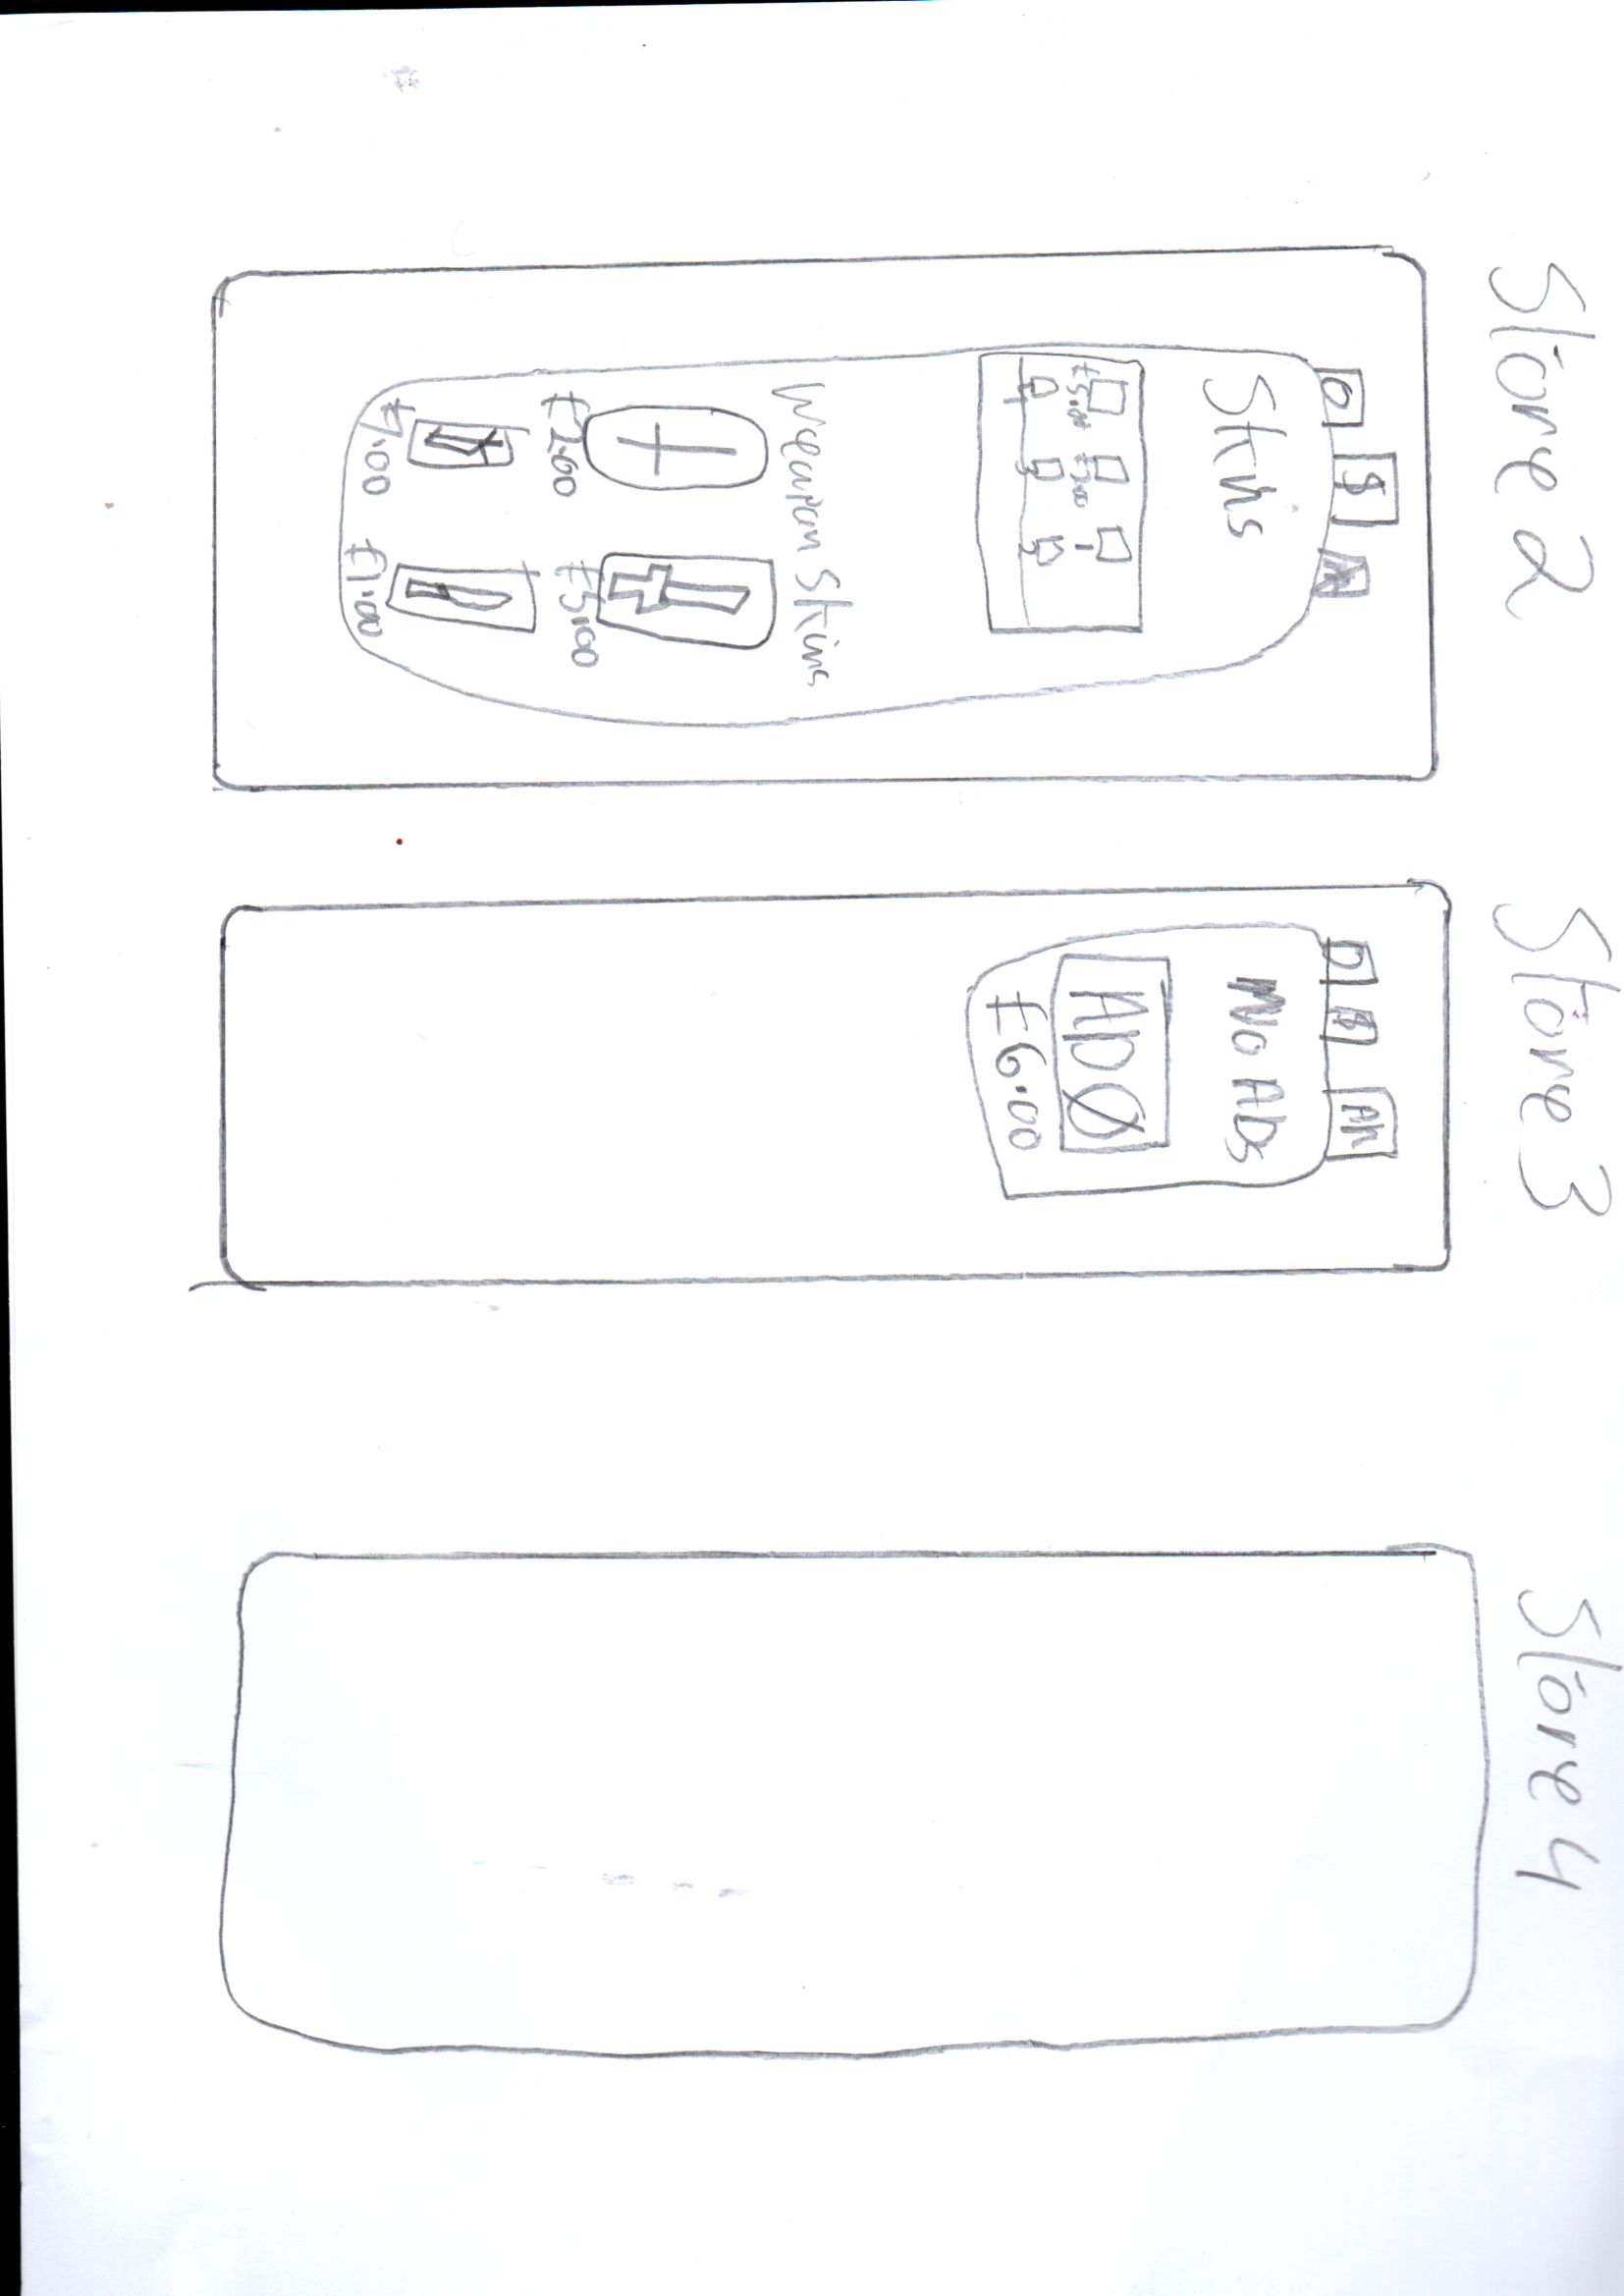 Store 2
O
S
A
Skins
£5.00
Weapon Skins
£2.00
£5.00
£1.00
£1.00
Store 3
O
S
AD
No ADs
AD
£6.00
Store 4